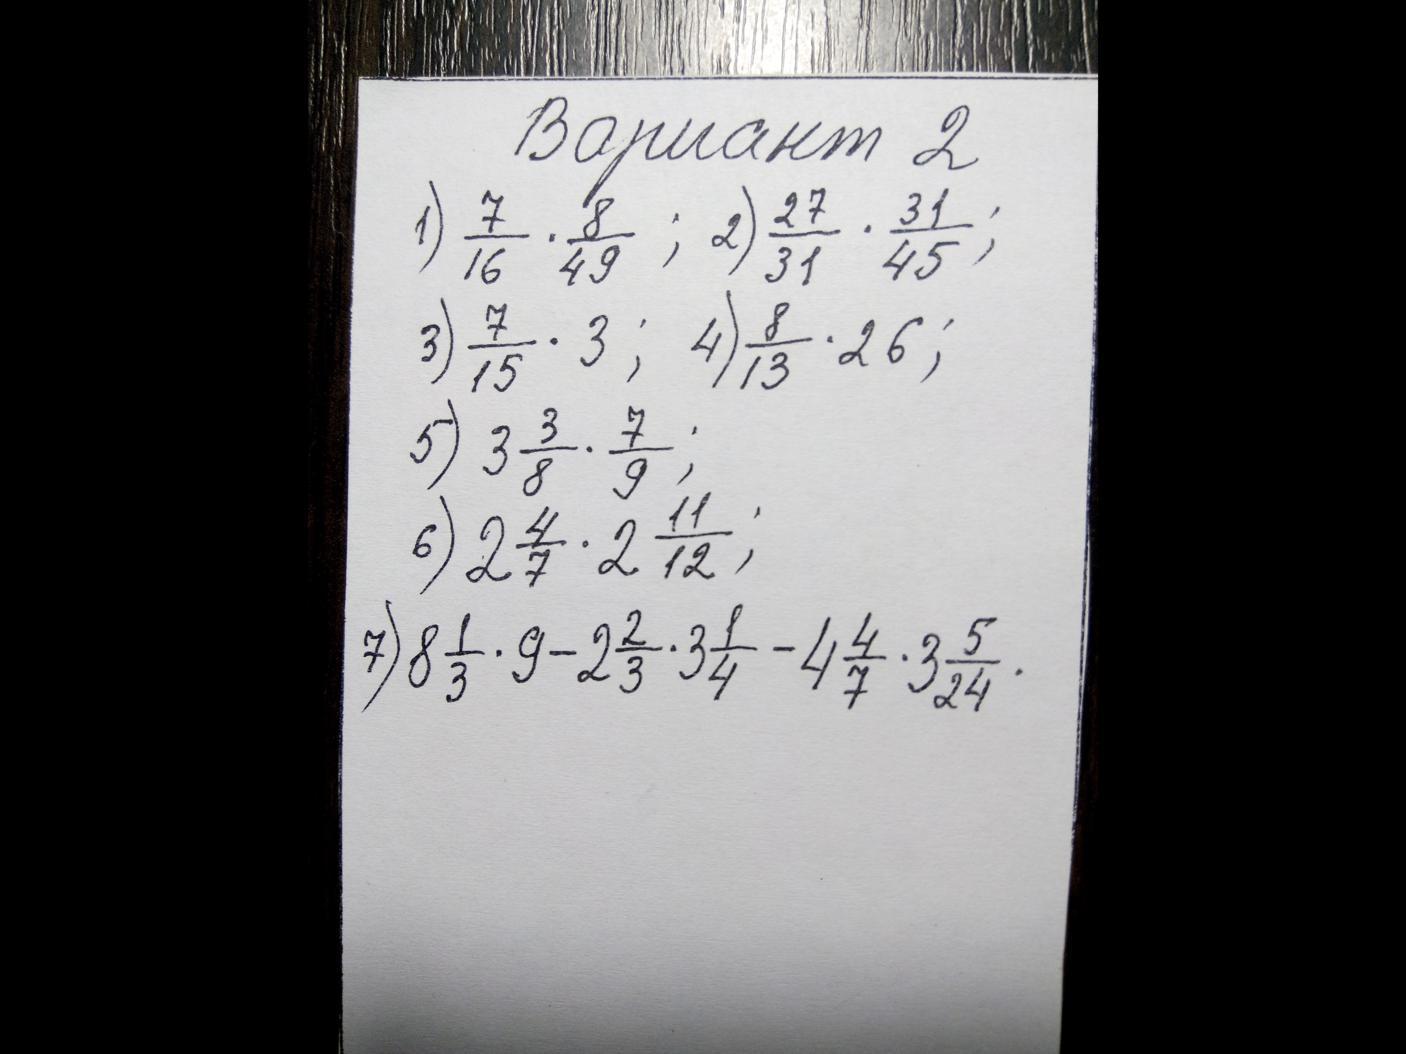 Вариант 2
1) 7/16 · 8/49 ; 2) 27/31 · 31/45 ;
3) 7/15 · 3 ; 4) 8/13 · 26 ;
5) 3 3/8 · 7/9 ;
6) 2 4/7 · 2 11/12 ;
7) 8 1/3 · 9 - 2 2/3 · 3 1/4 - 4 4/7 · 3 5/24 .